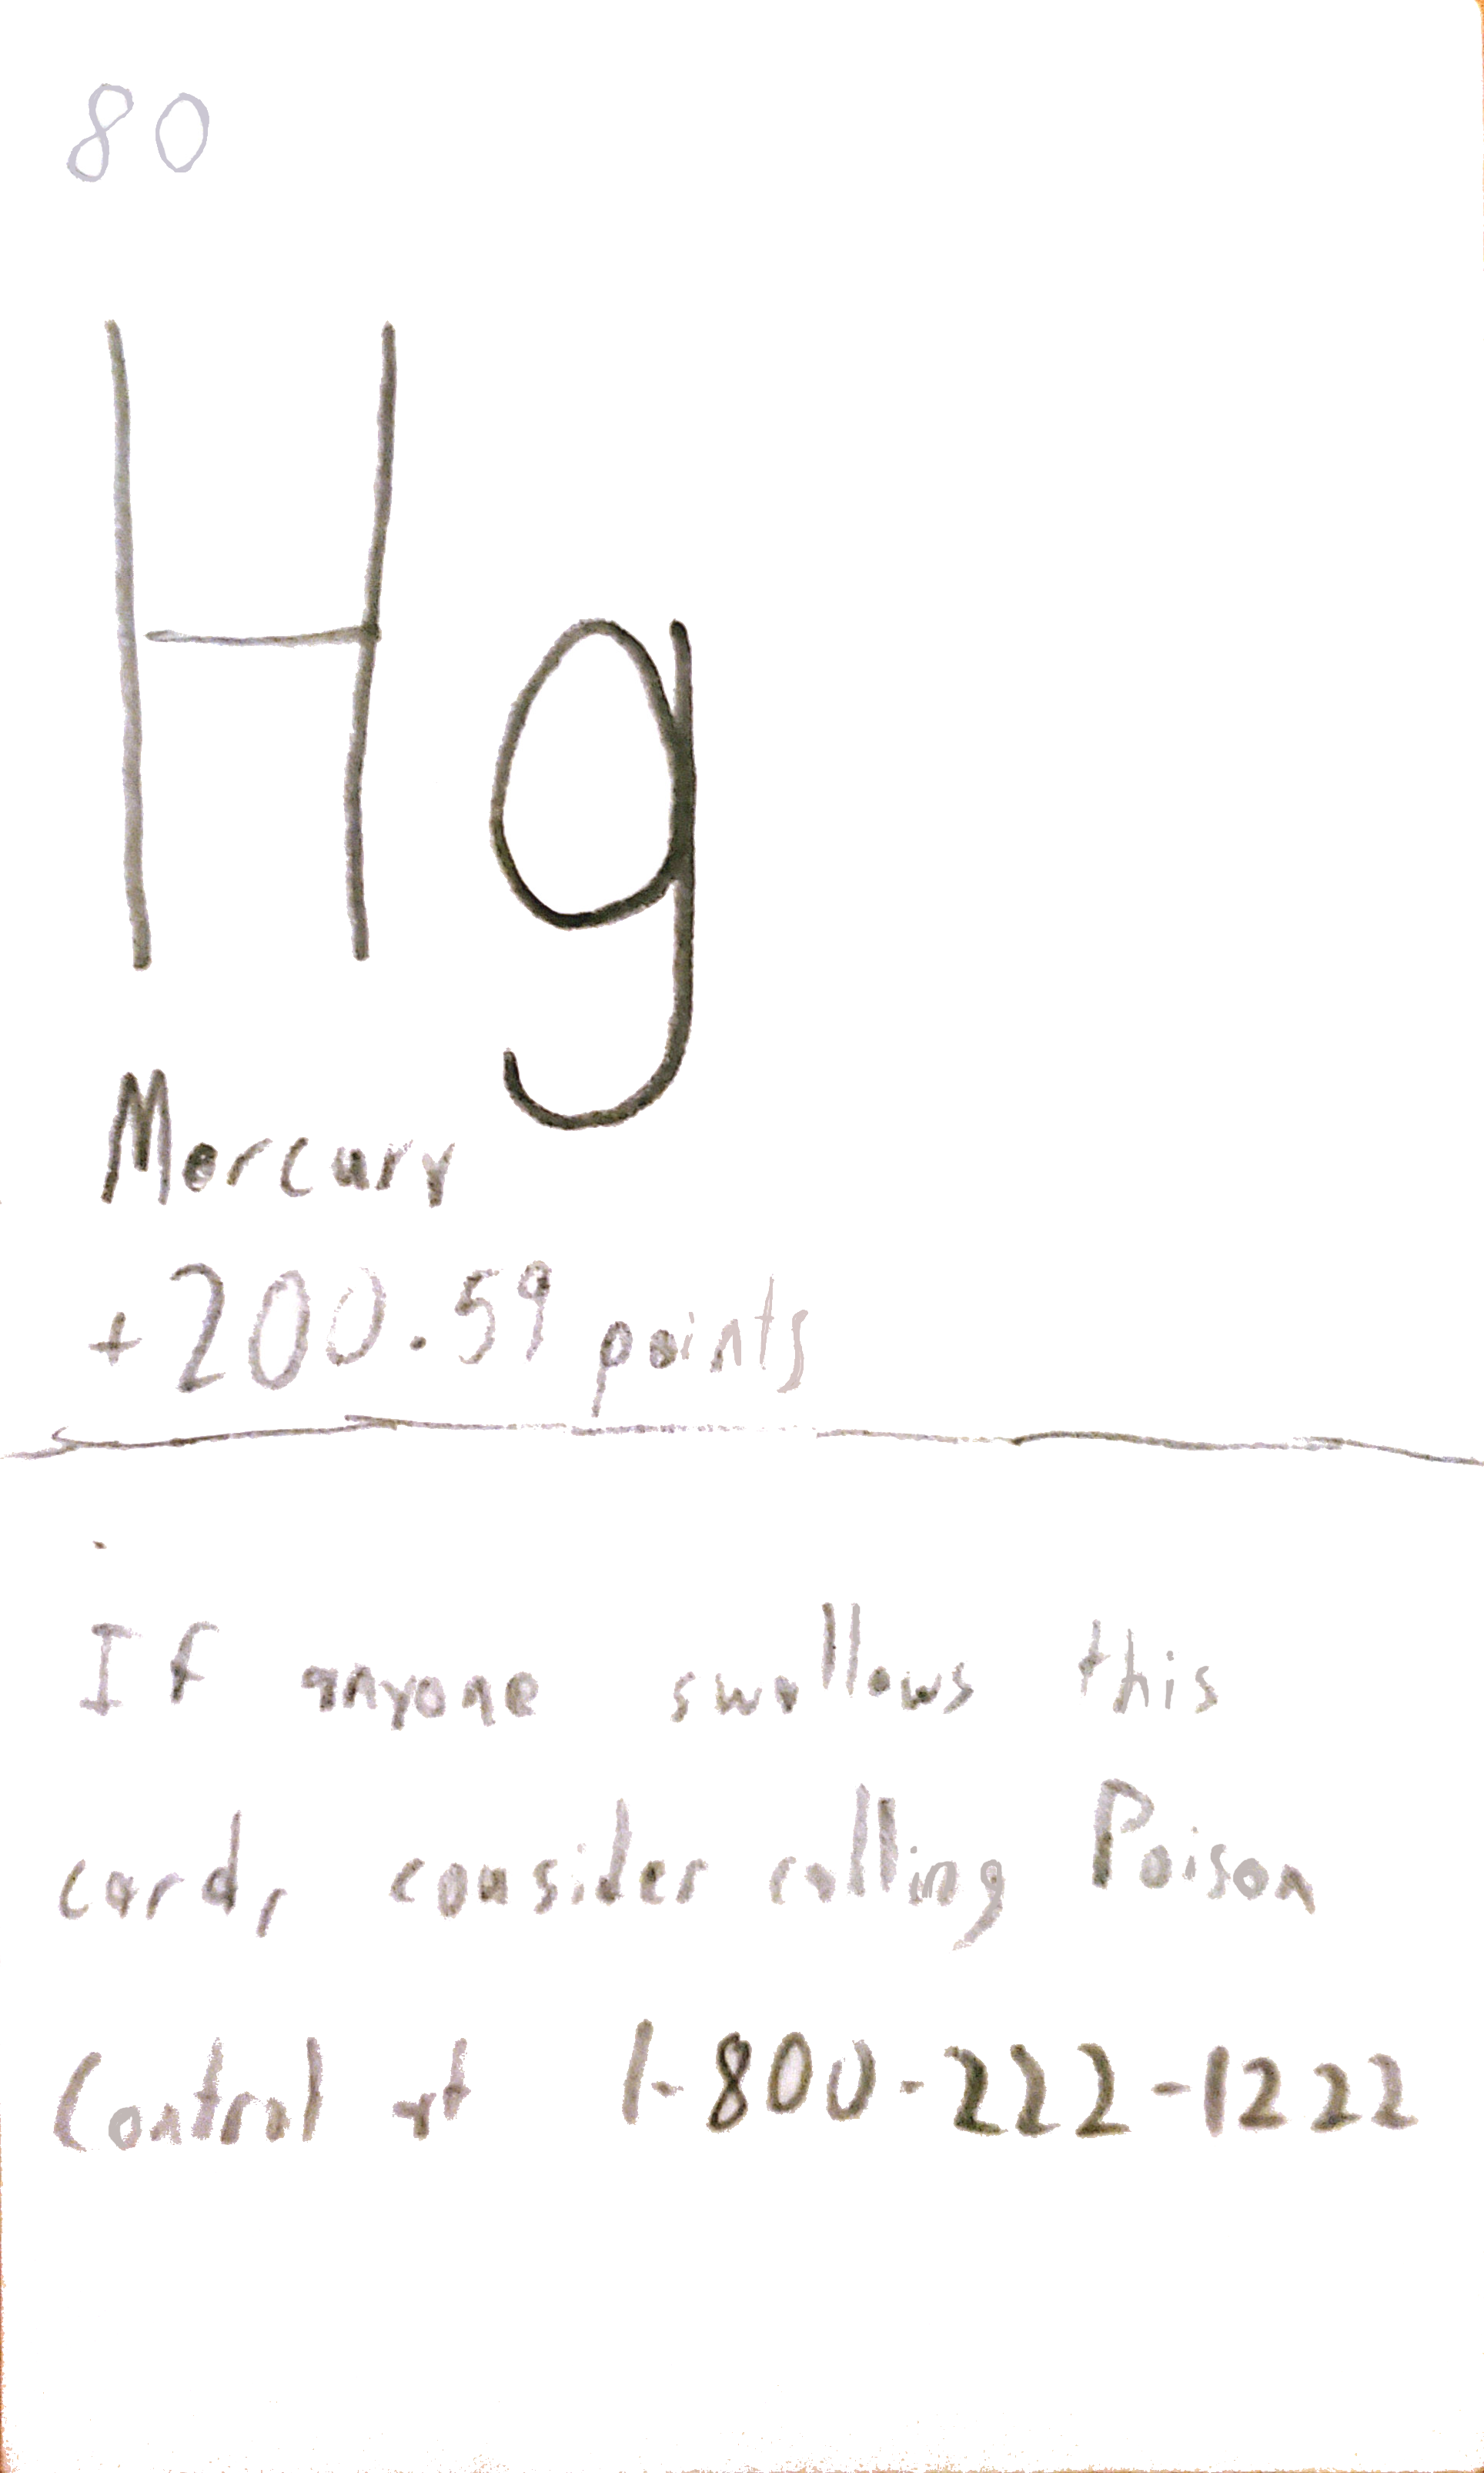 80
Hg
Mercury
+200.59 points
If anyone swallows this
card, consider calling Poison
Control at 1-800-222-1222